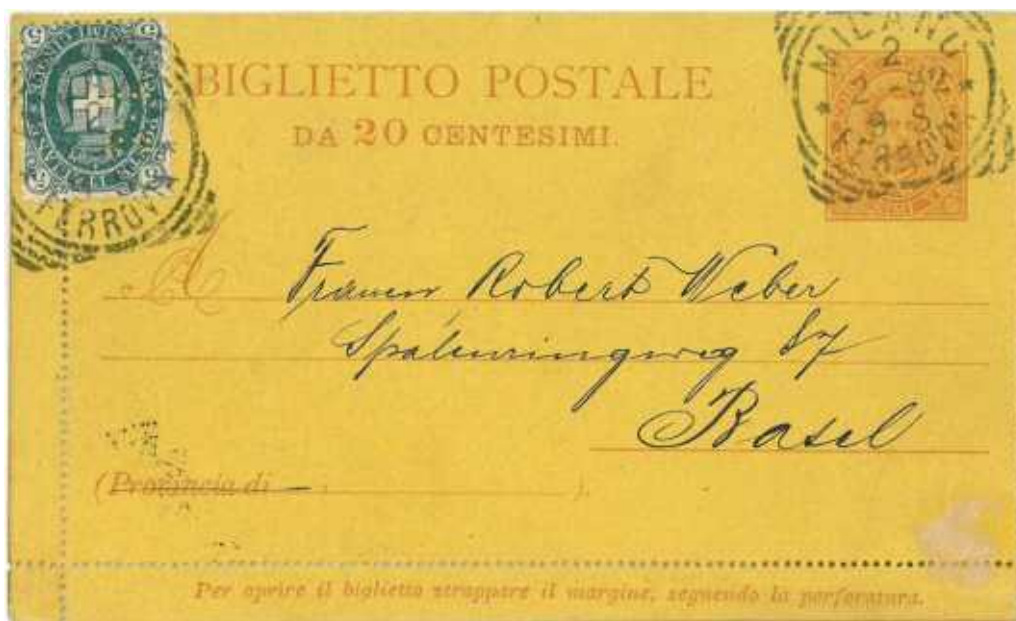 BIGLIETTO POSTALE
DA 20 CENTESIMI.
MILANO
2
7 - 92
9 - S
FERROVIA
5 5
5 5
FERROVIA
A
Robert Weber
Spalenringweg 87
Basel
(Provincia di ).
Per aprire il biglietto strappare il margine, seguendo la perforatura.